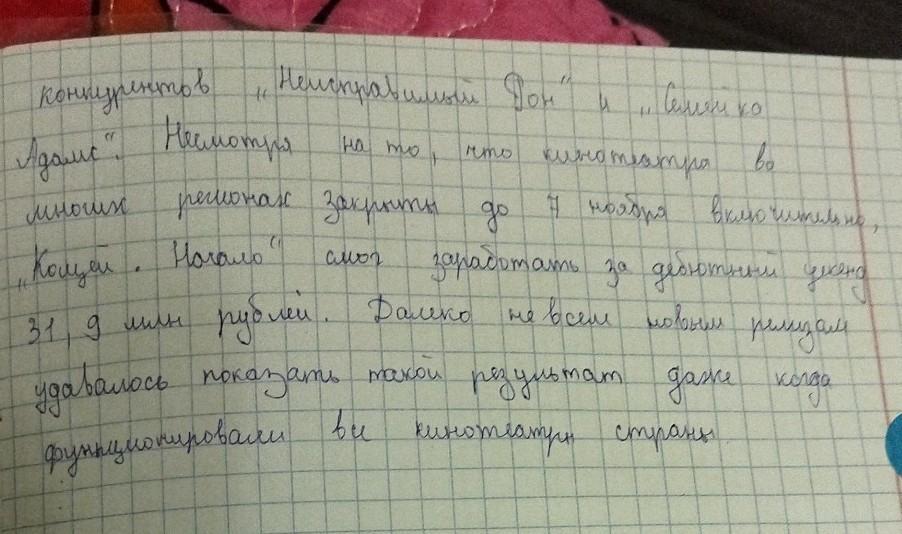 конкурентов „Неисправимый Рон" и „Семейка
Адамс". Несмотря на то, что кинотеатра во
многих регионах закрыты до 7 ноября включительно,
„Кощей. Начало" смог заработать за дебютный уикенд
31,9 млн рублей. Далеко не всем новым релизам
удавалось показать такой результат даже когда
функционировали все кинотеатры страны.